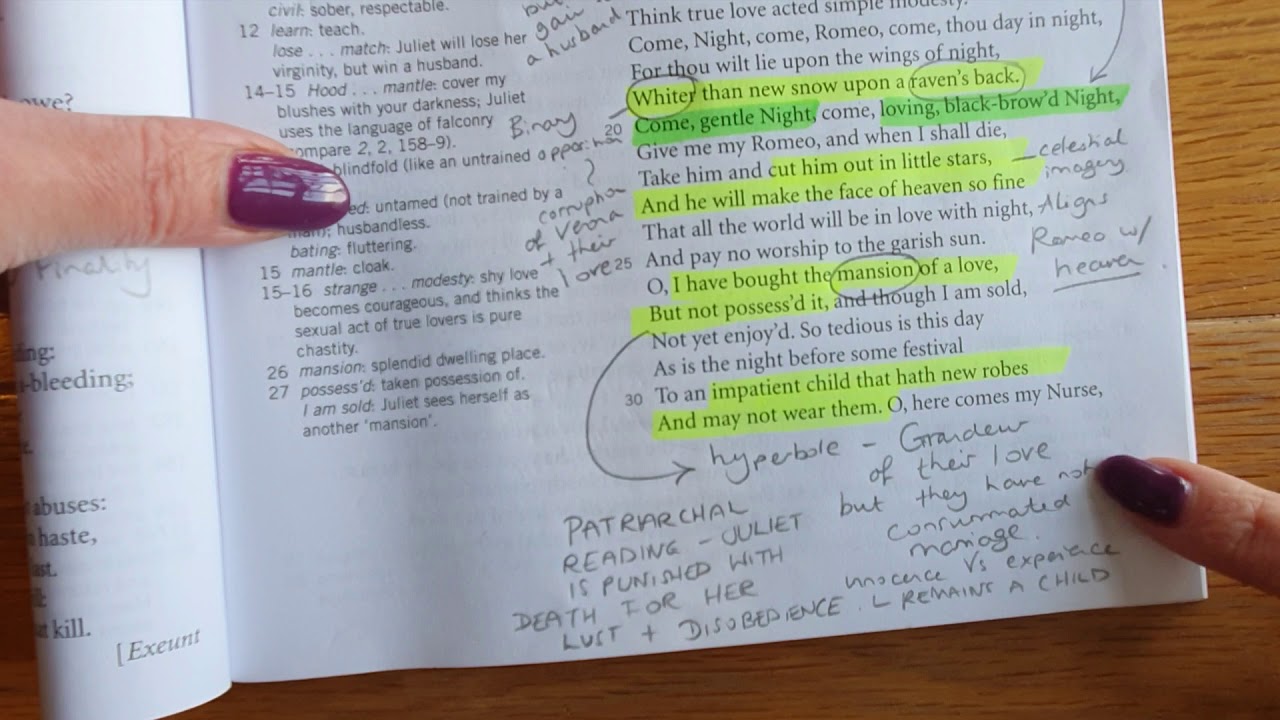 owe?
Finality
ding:
-bleeding;
abuses:
haste,
ast.
at kill.
[Exeunt
civil: sober, respectable.
12 learn: teach.
lose . . . match: Juliet will lose her
virginity, but win a husband.
14–15 Hood . . . mantle: cover my
blushes with your darkness; Juliet
uses the language of falconry
ompare 2, 2, 158–9).
blindfold (like an untrained
ed: untamed (not trained by a
man); husbandless.
bating: fluttering.
15 mantle: cloak.
15–16 strange . . . modesty: shy love
becomes courageous, and thinks the
sexual act of true lovers is pure
chastity.
26 mansion: splendid dwelling place.
27 possess'd: taken possession of.
I am sold: Juliet sees herself as
another 'mansion'.
but
gain
a husband
Binary
opposition
?
corruption
of Verona
+ their
love
Think true love acted simple modesty.
Come, Night, come, Romeo, come, thou day in night,
For thou wilt lie upon the wings of night,
Whiter than new snow upon a raven's back.
20 Come, gentle Night, come, loving, black-brow'd Night,
Give me my Romeo, and when I shall die,
Take him and cut him out in little stars,
And he will make the face of heaven so fine
That all the world will be in love with night,
25 And pay no worship to the garish sun.
O, I have bought the mansion of a love,
But not possess'd it, and though I am sold,
Not yet enjoy'd. So tedious is this day
As is the night before some festival
30 To an impatient child that hath new robes
And may not wear them. O, here comes my Nurse,
celestial
imagery
Aligns
Romeo w/
heaven.
hyperbole - Grandeur
of their love
but they have not
consummated
marriage.
innocence Vs experience
REMAINS A CHILD
PATRIARCHAL
READING - JULIET
IS PUNISHED WITH
DEATH FOR HER
LUST + DISOBEDIENCE.